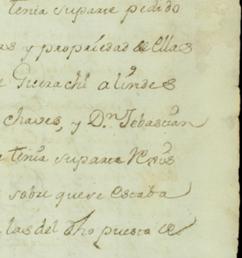 tenia suparte pedido
as y propriedad de ellas
Guirachi alindes
chaves, y D.n Sebastian
tenia suparte
sobre queve estaba
las del dho puesta de